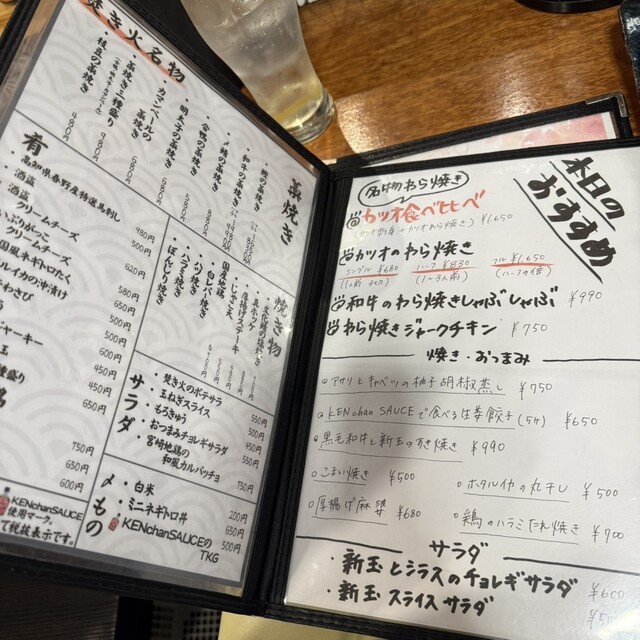 焚き火名物
藁焼き
カマンベールの藁焼き
明太子の藁焼き
肴
高知県春野産特選馬刺し 980円
酒盗 500円
酒盗クリームチーズ
いぶりがっこクリームチーズ 620円
国産ネギトロたく 580円
ホタルイカの沖漬け 650円
わさび 500円
ジャーキー 500円
玉 600円
盛り 450円
450円
650円
750円
650円
600円
KENchanSAUCE
使用マーク。
て税抜表示です。
焼き物
国産地鶏
じゃが天
白レバー焼き
ハツ焼き
ぼんじり焼き
サラダ
・焚き火のポテサラ 550円
・玉ねぎスライス 450円
・もろきゅう 500円
・おつまみチョレギサラダ 550円
・宮崎地鶏の和風カルパッチョ 750円
〆もの
・白米 200円
・ミニネギトロ丼 650円
・KENchanSAUCEのTKG 500円
本日のおすすめ
名物わら焼き
カツオ食べ比べ ¥1,650
カツオのわら焼き
シングル ¥680 ハーフ ¥830 フル ¥1,650
(ハーフの倍)
和牛のわら焼きしゃぶしゃぶ ¥990
わら焼きジャークチキン ¥750
焼き・おつまみ
アサリとキャベツの柚子胡椒蒸し ¥750
KENchan SAUCEで食べる生姜餃子(5ヶ) ¥650
黒毛和牛と新玉のすき焼き ¥990
こまい焼き ¥500
ホタルイカの丸干し ¥500
厚揚げ麻婆 ¥680
鶏のハラミたれ焼き ¥700
サラダ
・新玉とシラスのチョレギサラダ ¥600
・新玉スライスサラダ